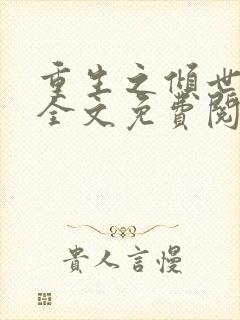 重生之傾世
全文免費閱
貴人言慢